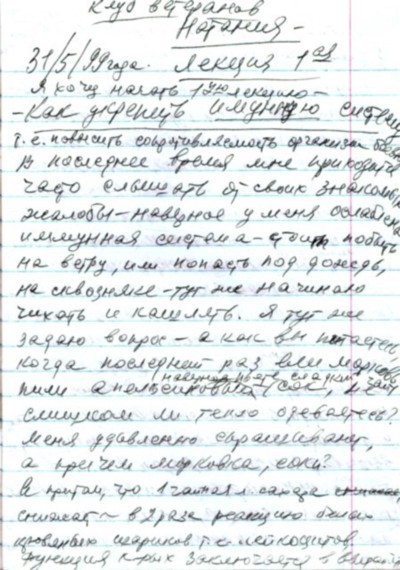 Клуб ветеранов
Натания -
31/5/99 года. Лекция 1ая
Я хочу начать 1ую лекцию -
- Как укрепить имунную систему
т.е. повысить сопротивляемость организма
В последнее время мне приходится
часто слышать от своих знакомых
жалобы - наверное у меня ослаблена
иммунная система - стоит побыть
на ветру, или попасть под дождь,
на сквозняке - тут же начинаю
чихать и кашлять. Я тут же
задаю вопрос - а как вы питаетесь,
когда последний раз ели морковь
пили апельсиновый сок,
слишком ли тепло одеваетесь?
Меня удивленно спрашивают,
а причем морковка, соки?
А притом, что 1 чайная л. сахара
снижает ~ в 2 раза реакцию белых
кровяных шариков т.е. лейкоцитов
функция к-рых заключается в